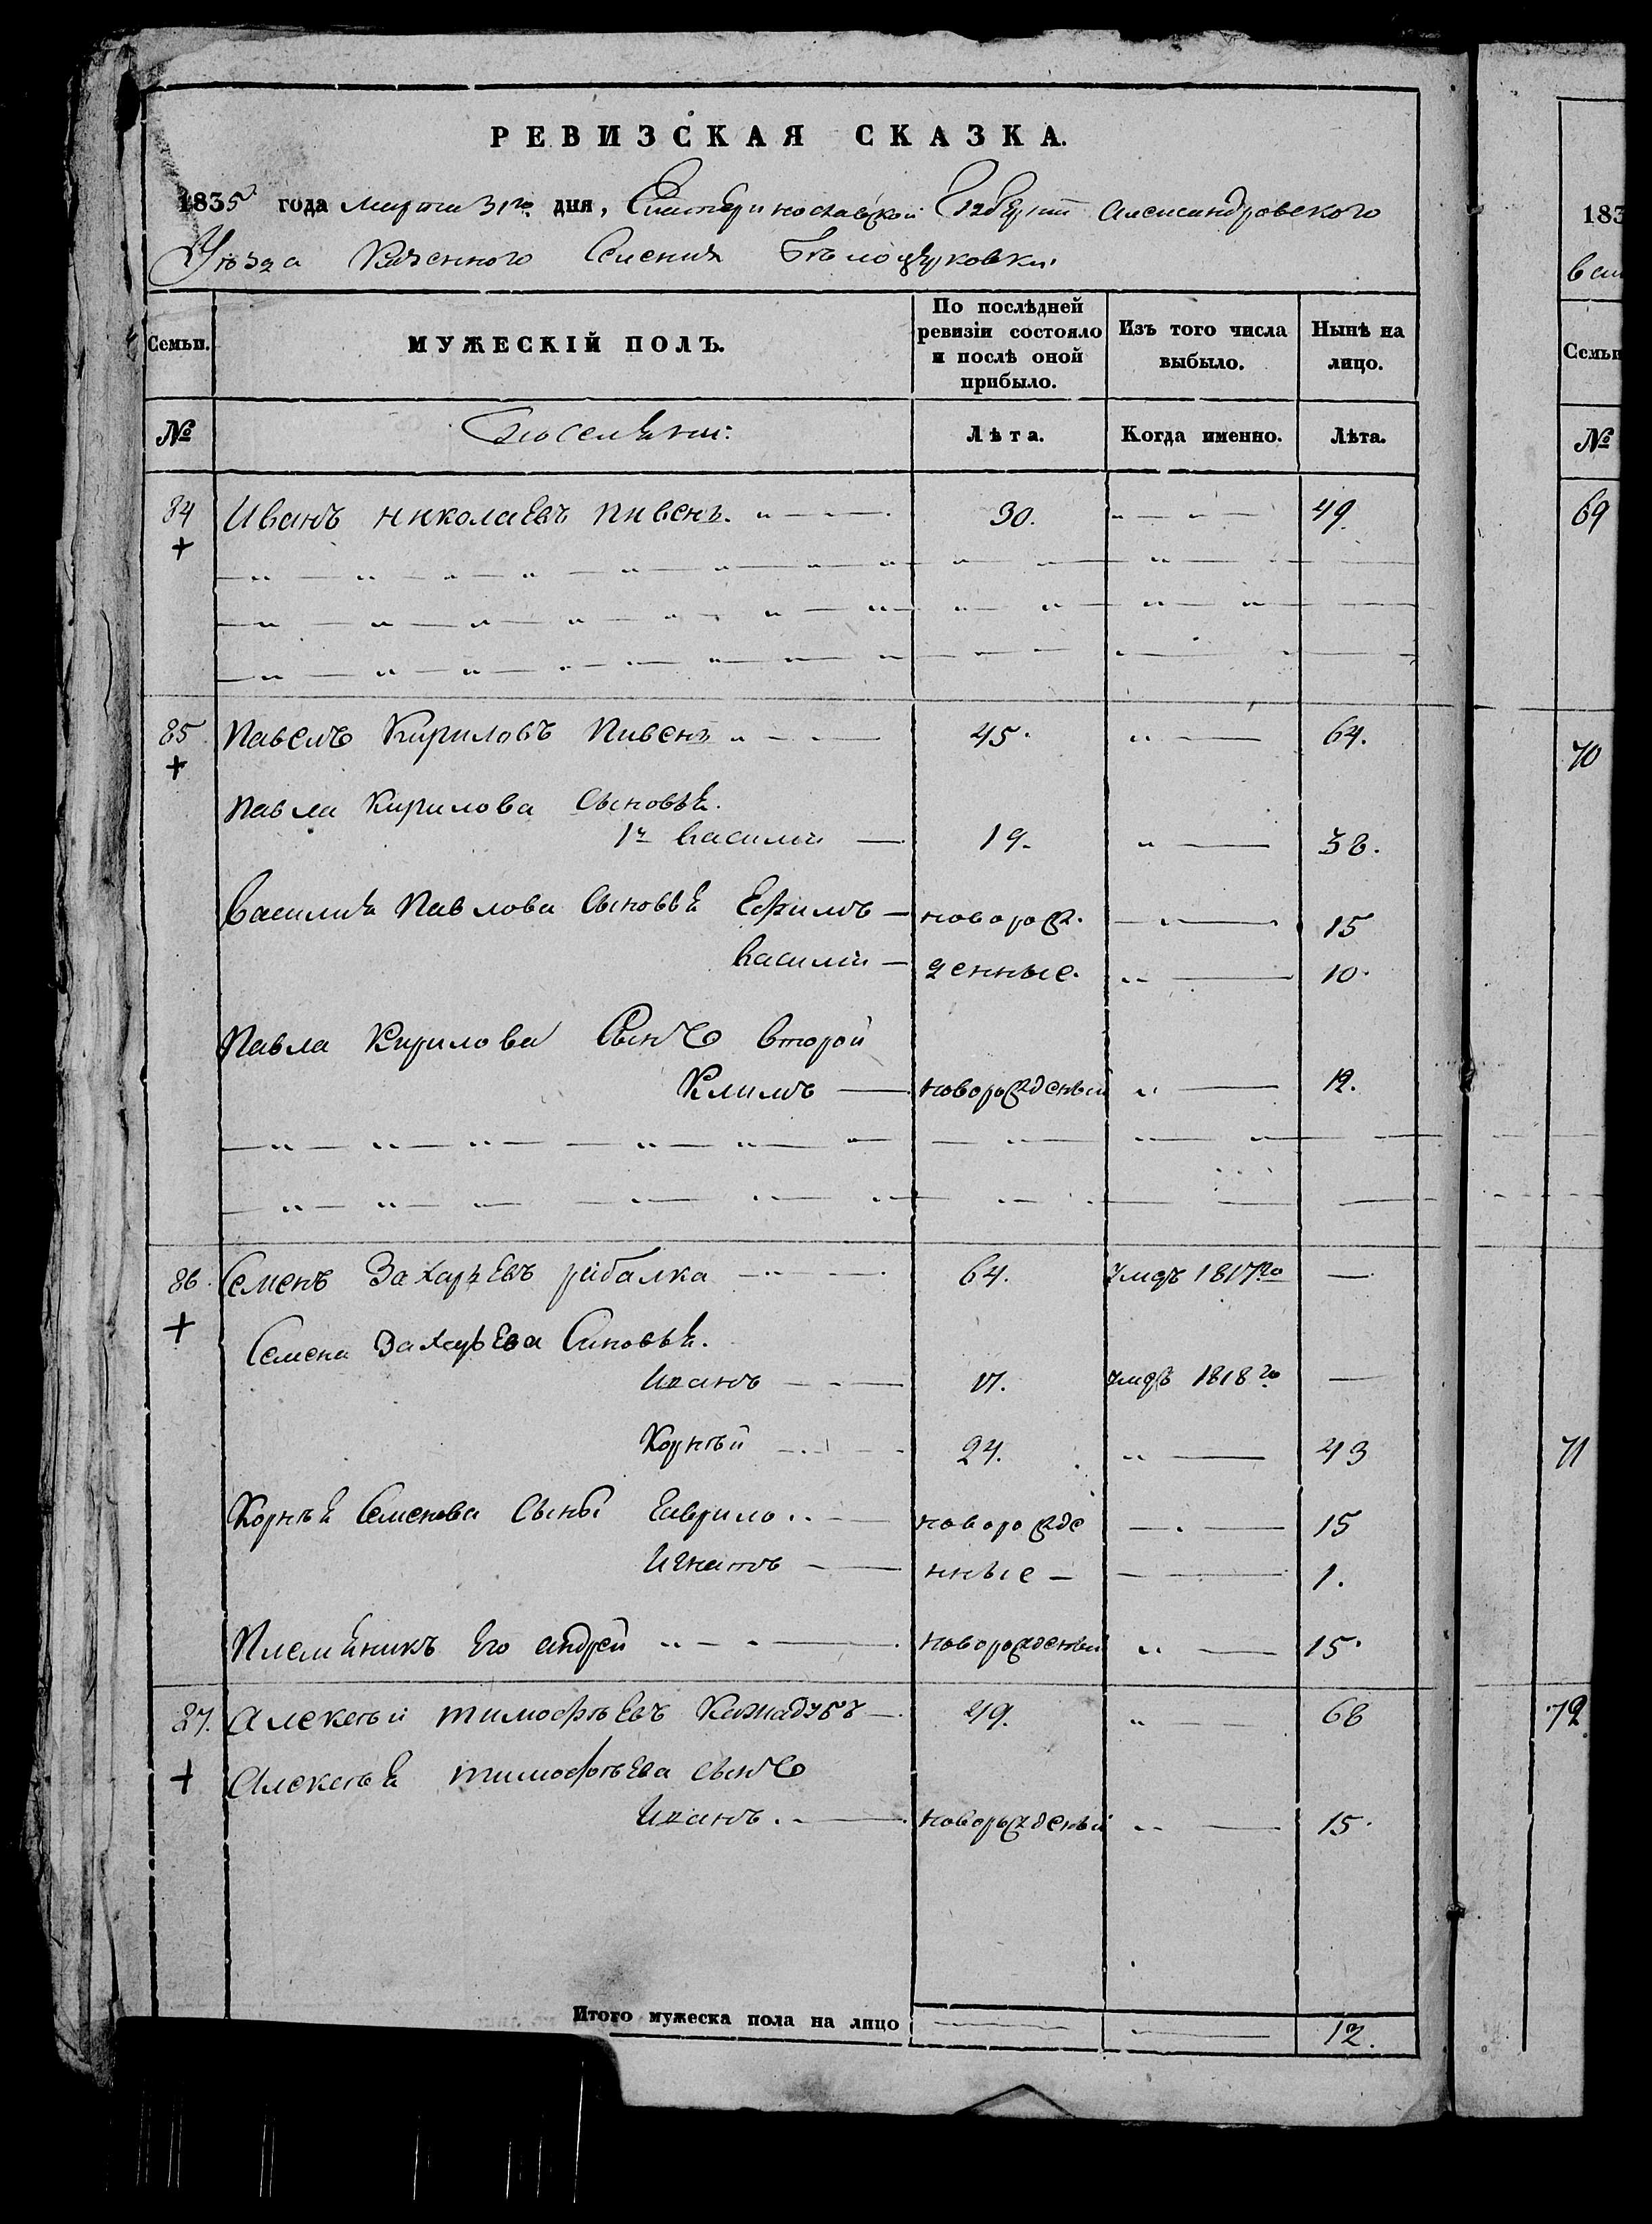 РЕВИЗСКАЯ СКАЗКА.
1835 года Марта 31го дня, Екатеринославской Губерніи Александровского
Уѣзда Казенного Селенія Бѣлоцерковки.
Семьи. МУЖЕСКІЙ ПОЛЪ. По послѣдней ревизіи состояло и послѣ оной прибыло. Изъ того числа выбыло. Нынѣ на лицо.
№ Поселяни: Лѣта. Когда именно. Лѣта.
84 Иванъ Николаевъ Пивень. 30. 49.
+
85 Павелъ Кириловъ Пивень 45. 64.
+
Павла Кирилова Сыновья.
1й Василий 19. 38.
Василия Павлова Сыновья Ефимъ новорож- 15
Василій денные. 10.
Павла Кирилова Сынъ второй
Климъ новорожденый 12.
86. Семенъ Захарьевъ рибалка 64. умеръ 1817го
+
Семена Захарьева Сыновья.
Иванъ 17. умеръ 1818го
Корнѣй 24. 43
Корнѣя Семенова Сыны Гаврило новорожде 15
Игнатъ нные 1.
Племяникъ Его андрей новорожденый 15.
87. Алексѣй тимофѣевъ 49. 68
+ Алексѣя тимофѣева сынъ
Иванъ новорожденый 15.
Итого мужеска пола на лицо 12.
183
Семьи
№
69
70
71
72